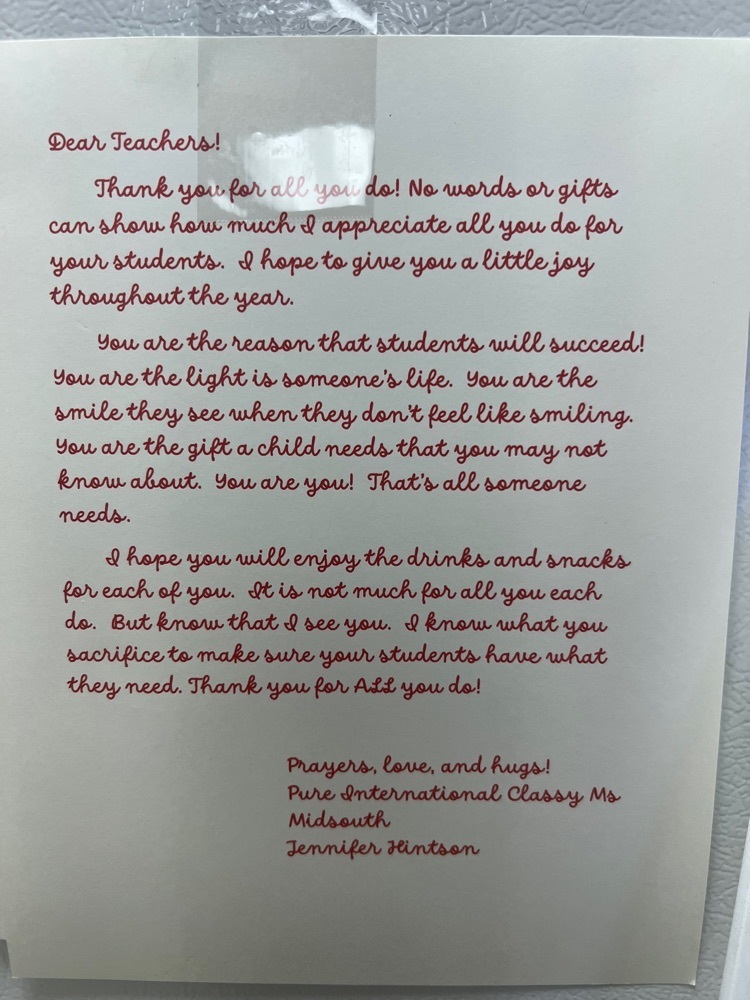 Dear Teachers!
Thank you for all you do! No words or gifts
can show how much I appreciate all you do for
your students. I hope to give you a little joy
throughout the year.
You are the reason that students will succeed!
You are the light is someone's life. You are the
smile they see when they don't feel like smiling.
You are the gift a child needs that you may not
know about. You are you! That's all someone
needs.
I hope you will enjoy the drinks and snacks
for each of you. It is not much for all you each
do. But know that I see you. I know what you
sacrifice to make sure your students have what
they need. Thank you for ALL you do!
Prayers, love, and hugs!
Pure International Classy Ms
Midsouth
Jennifer Hintson